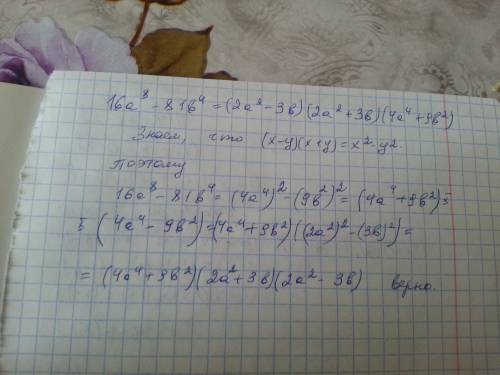 16a⁸ - 81b⁴ = (2a² - 3b)(2a² + 3b)(4a⁴ + 9b²)
Знаем, что (x-y)(x+y) = x² - y².
поэтому
16a⁸ - 81b⁴ = (4a⁴)² - (9b²)² = (4a⁴ + 9b²)·
·(4a⁴ - 9b²) = (4a⁴ + 9b²)((2a²)² - (3b)²) =
= (4a⁴ + 9b²)(2a² + 3b)(2a² - 3b) верно.